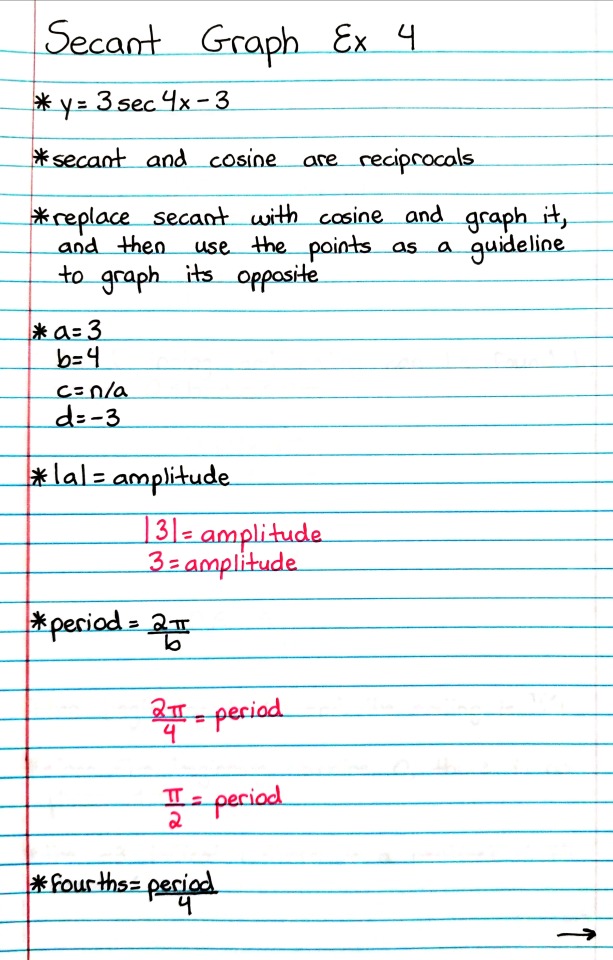 Secant Graph Ex 4
* y = 3 sec 4x - 3
* secant and cosine are reciprocals
* replace secant with cosine and graph it,
and then use the points as a guideline
to graph its opposite
* a = 3
b = 4
c = n/a
d = -3
* |a| = amplitude
|3| = amplitude
3 = amplitude
* period = 2π/b
2π/4 = period
π/2 = period
* fourths = period/4
→